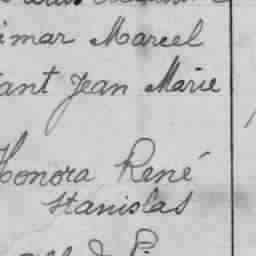 imar Marcel
ant Jean Marie
Honora René
Stanislas